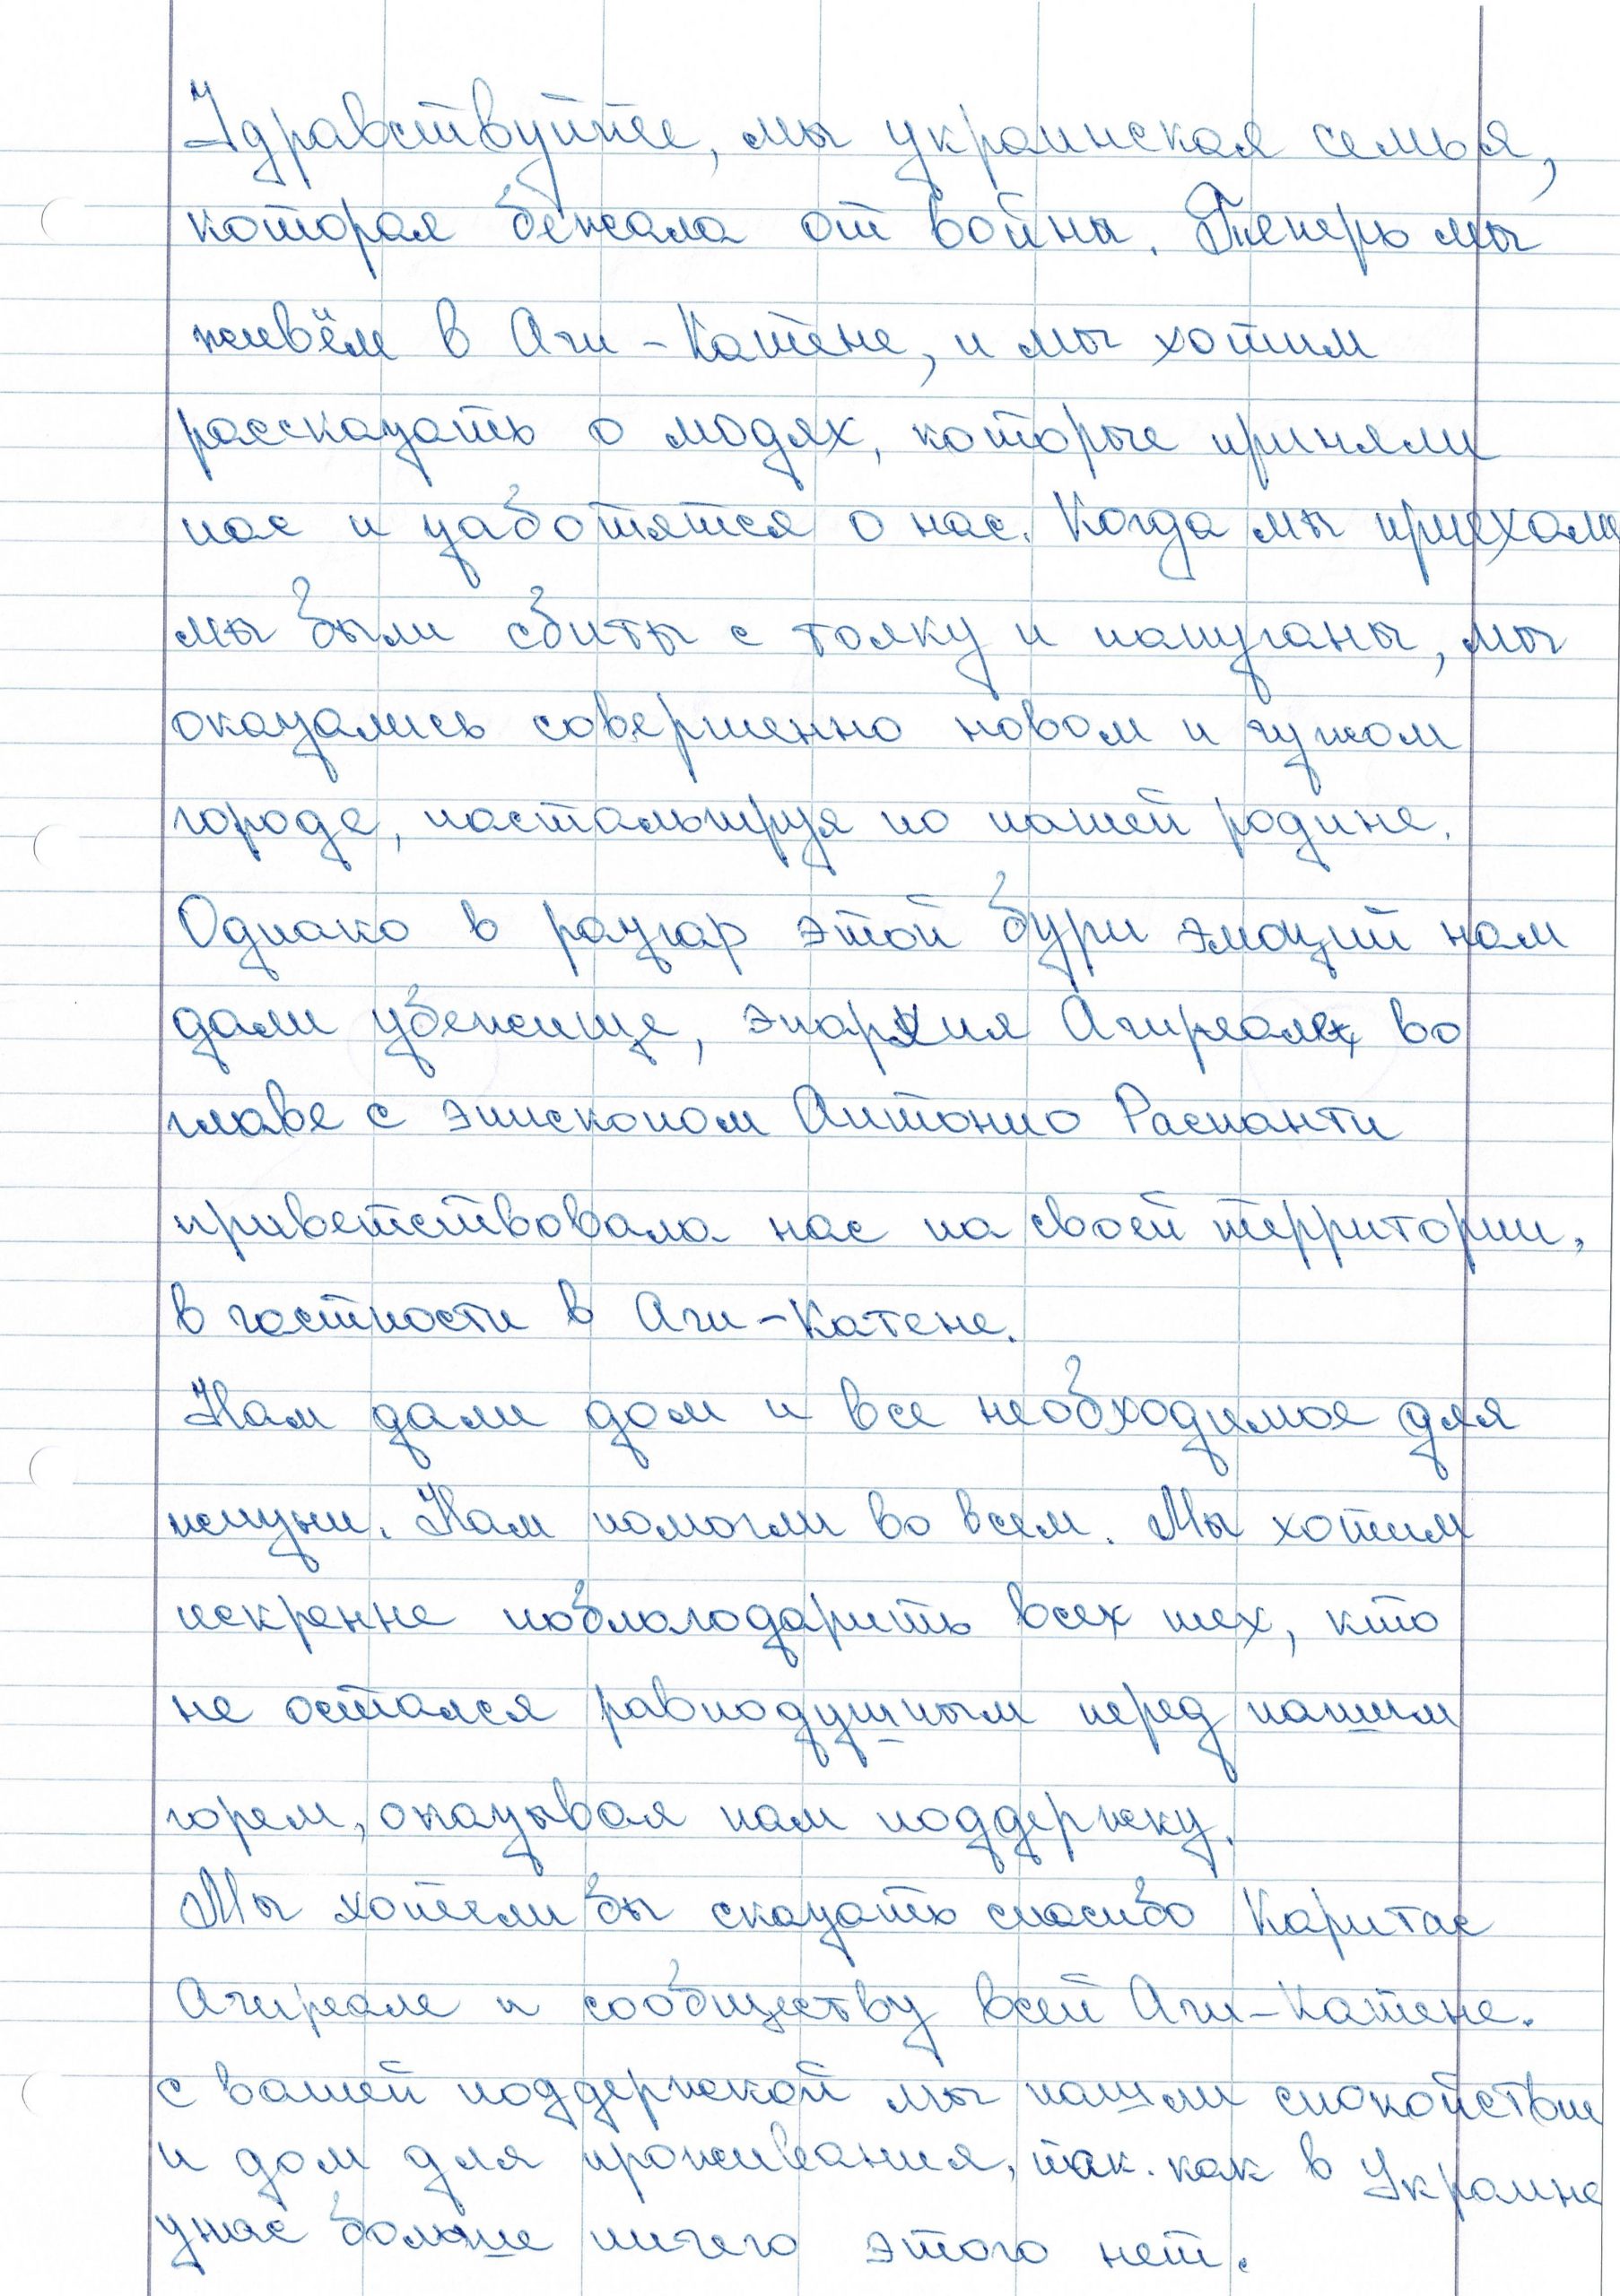 Здравствуйте, мы украинская семья,
которая бежала от войны. Теперь мы
живём в Ачи-Катене, и мы хотим
рассказать о людях, которые приняли
нас и заботятся о нас. Когда мы приехали
мы были сбиты с толку и напуганы, мы
оказались совершенно новом и чужом
городе, ностальгируя по нашей родине.
Однако в разгар этой бури эмоций нам
дали убежище, епархия Ачиреале, во
главе с епископом Антонио Распанти
приветствовала нас на своей территории,
в частности в Ачи-Катене.
Нам дали дом и все необходимое для
жизни. Нам помогли во всем. Мы хотим
искренне поблагодарить всех тех, кто
не остался равнодушным перед нашим
горем, оказывая нам поддержку.
Мы хотели бы сказать спасибо Каритас
Ачиреале и сообществу всей Ачи-Катене.
с вашей поддержкой мы нашли спокойствие
и дом для проживания, так. как в Украине
у нас больше ничего этого нет.